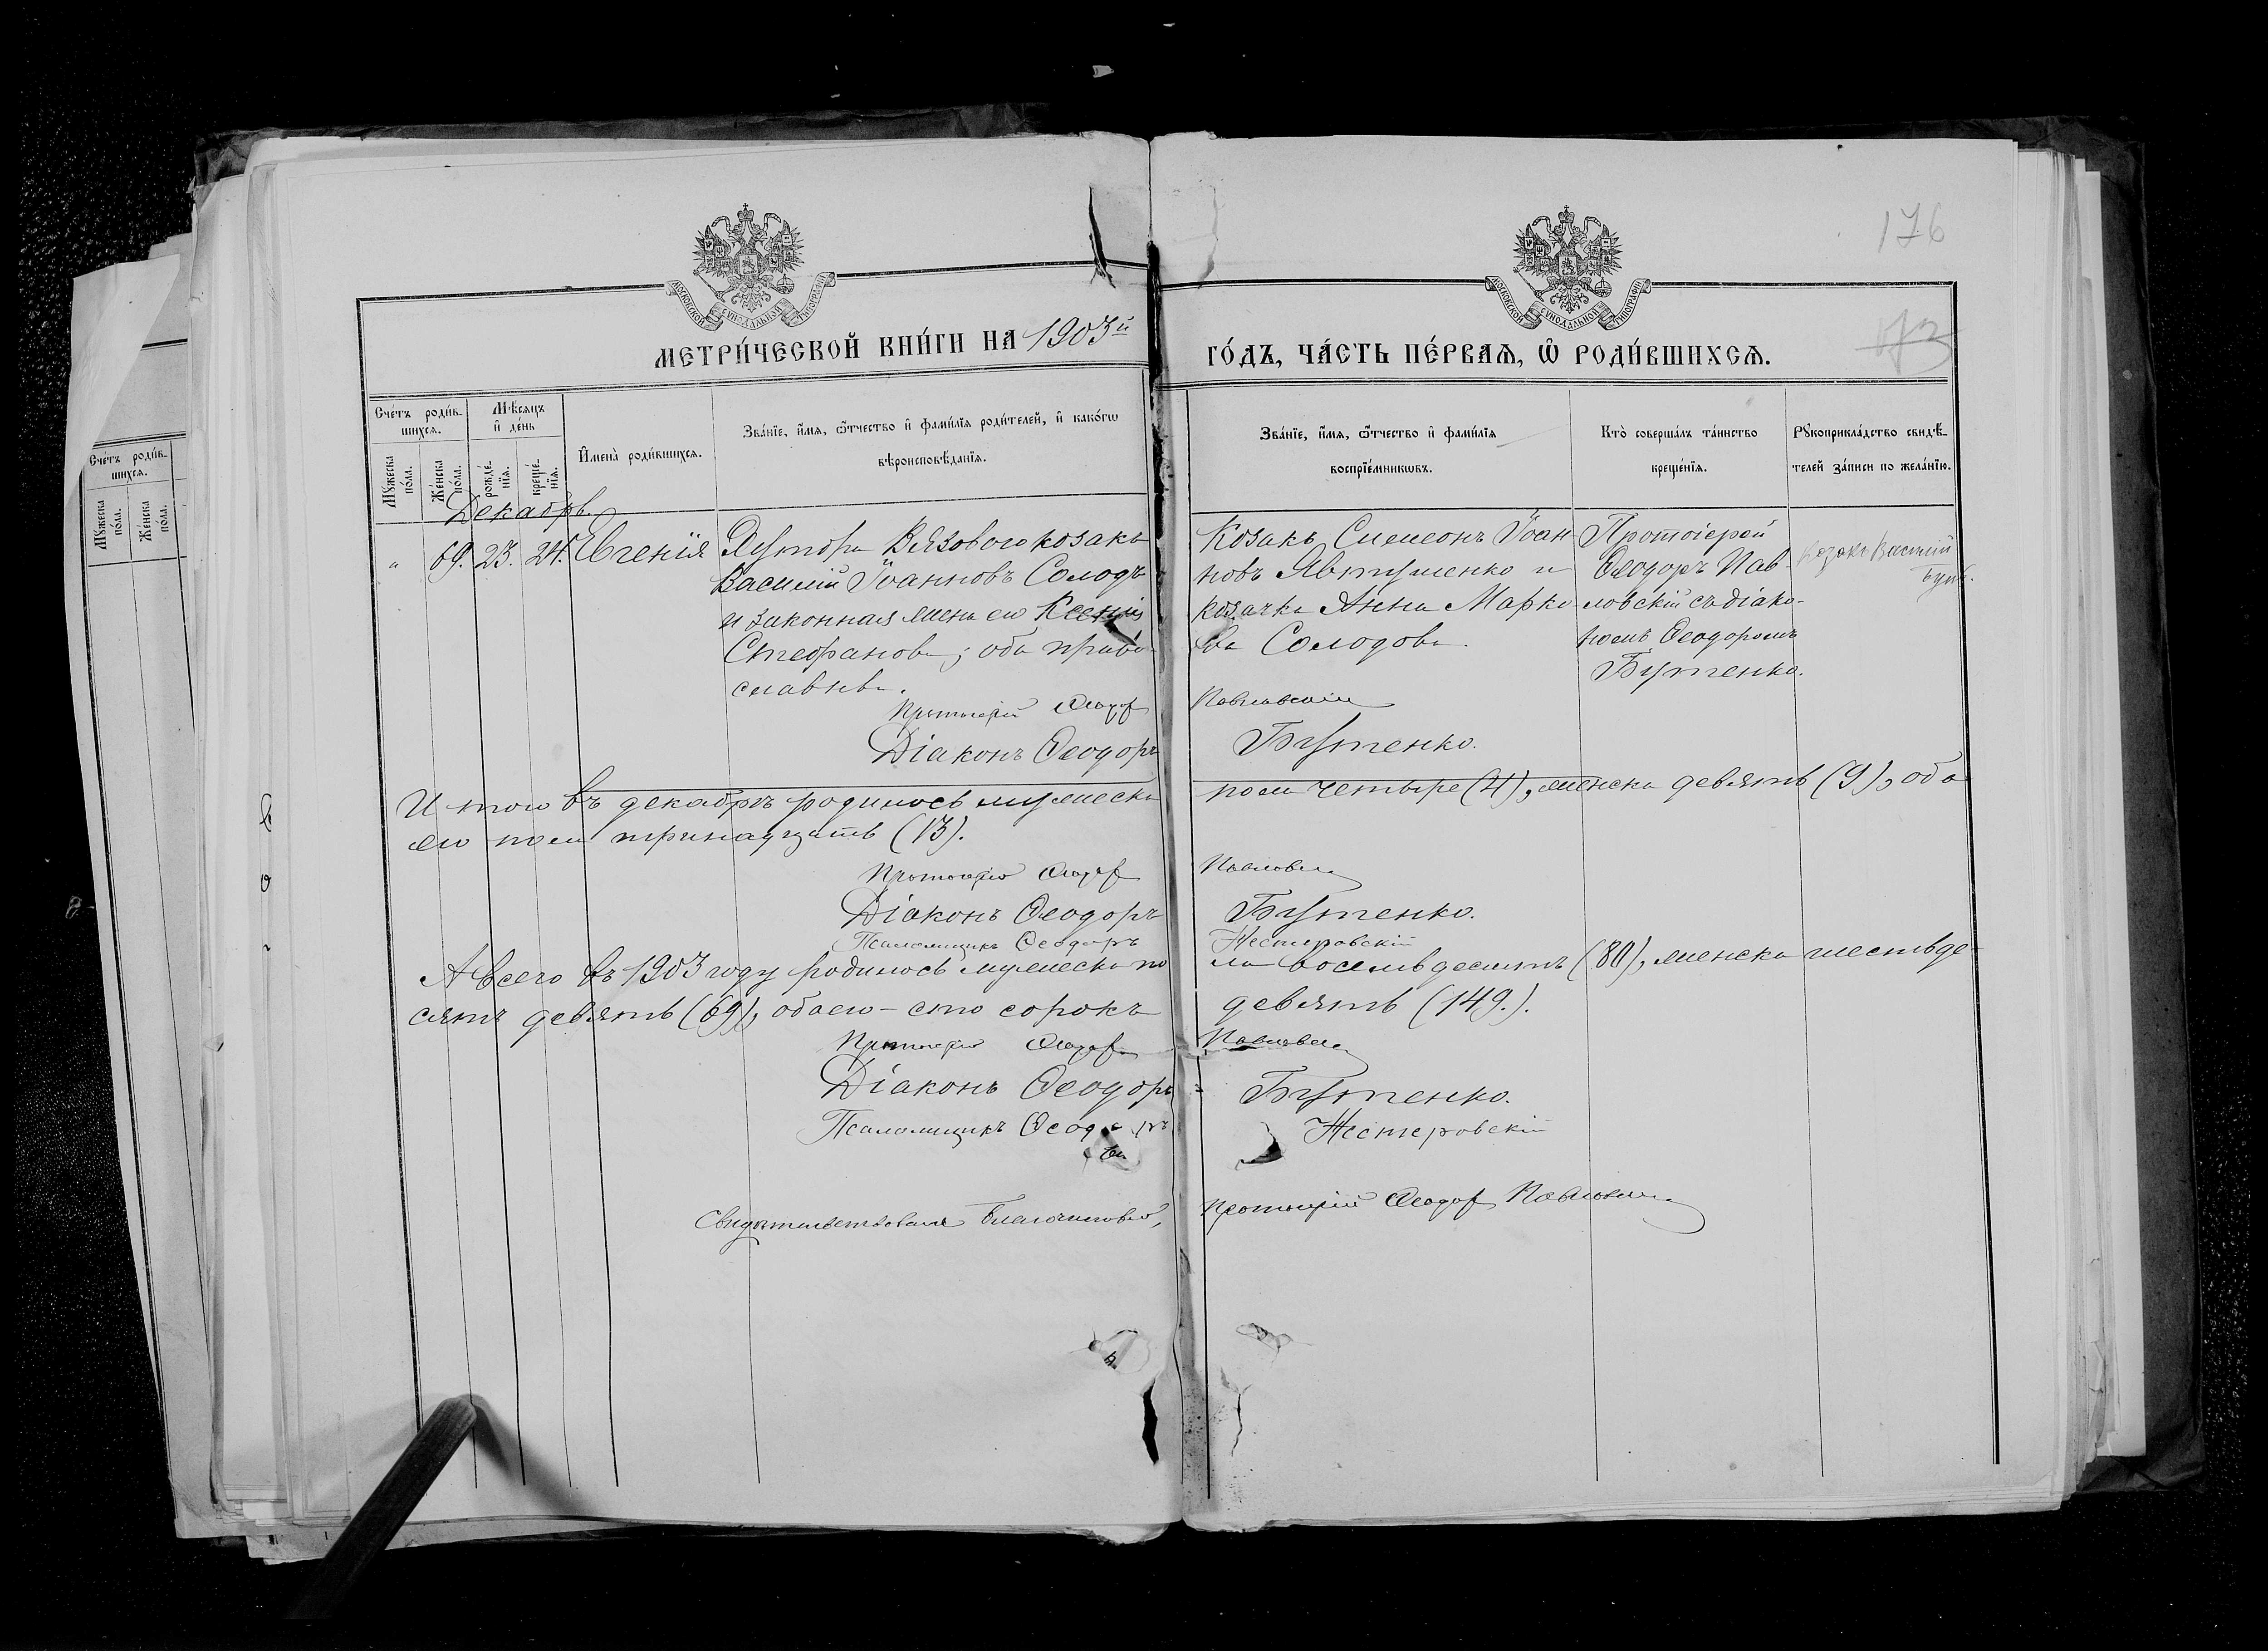 176
МОСКОВСКОЙ СУНОДАЛЬНОЙ ТИПОГРАФІИ
МОСКОВСКОЙ СУНОДАЛЬНОЙ ТИПОГРАФІИ
МЕТРИ́ЧЕСКОЙ КНИ́ГИ НА 1903й
ГО́ДЪ, ЧА́СТЬ ПЕ́РВАѦ, Ѡ҆ РОДИ́ВШИХСѦ.
Сче́тъ роди́в-
шихсѧ.
Мꙋ́жеска по́ла.
Же́нска по́ла.
Мѣ́сѧцъ и҆ де́нь
рожде́-нїѧ.
креще́-нїѧ.
И҆мена̀ роди́вшихсѧ.
Зва́нїе, и҆́мѧ, ѻ҆́тчество и҆ фами́лїѧ роди́телей, и҆ како́гѡ
вѣроисповѣ́данїѧ.
Зва́нїе, и҆́мѧ, ѻ҆́тчество и҆ фами́лїѧ
воспрїе́мникѡвъ.
Кто̀ соверша́лъ та́инство
креще́нїѧ.
Рꙋкоприкла́дство свидѣ́-
телей за́писи по жела́нїю.
Сче́тъ роди́в-
шихсѧ.
Мꙋ́жеска по́ла.
Же́нска по́ла.
Декабрь.
" 69. 23. 24. Евгенія
Хутора Вязоваго козакъ
Василий Іоанновъ Солодъ
и законная жена его Ксенія
Стефанова; оба право-
славные.
Козакъ Симеонъ Іоан-
новъ Явтушенко и
козачка Анна Марко-
ва Солодова.
Протоіерей
Ѳеодоръ Пав-
ловскій съ діако-
номъ Ѳеодоромъ
Бутенко.
Козакъ Василій
Протоіерей Ѳеодоръ Павловскій
Діаконъ Ѳеодоръ Бутенко.
Итого въ декабрѣ родилось мужеска пола четыре (4), женска девять (9), обо-
его пола тринадцать (13).
Протоіерей Ѳеодоръ Павловскій
Діаконъ Ѳеодоръ Бутенко.
Псаломщикъ Ѳеодоръ Нестеровскій
А всего въ 1903 году родилось мужеска по-ла восемьдесятъ (80), женска шестьде-
сятъ девять (69), обоего – сто сорокъ девять (149.).
Протоіерей Ѳеодоръ Павловскій
Діаконъ Ѳеодоръ Бутенко.
Псаломщикъ Ѳеодоръ Нестеровскій
Свидѣтельствовалъ Благочинный, Протоіерей Ѳеодоръ Павловскій